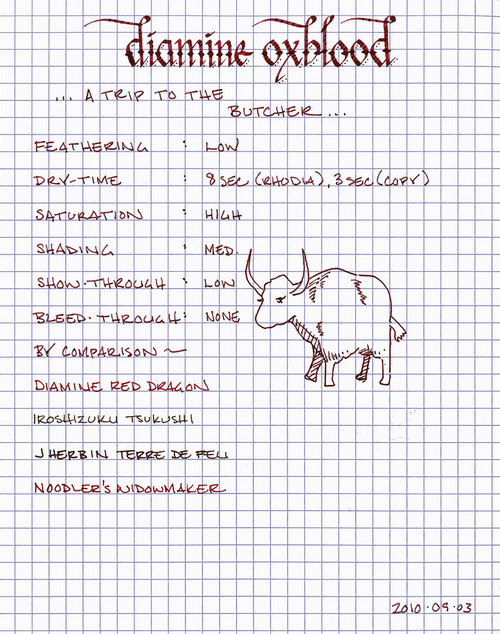 diamine oxblood
... A TRIP TO THE
BUTCHER ...
FEATHERING : LOW
DRY-TIME : 8 SEC (RHODIA), 3 SEC (COPY)
SATURATION : HIGH
SHADING : MED.
SHOW-THROUGH : LOW
BLEED-THROUGH : NONE
BY COMPARISON ~
DIAMINE RED DRAGON
IROSHIZUKU TSUKUSHI
J HERBIN TERRE DE FEU
NOODLER'S WIDOWMAKER
2010.09.03